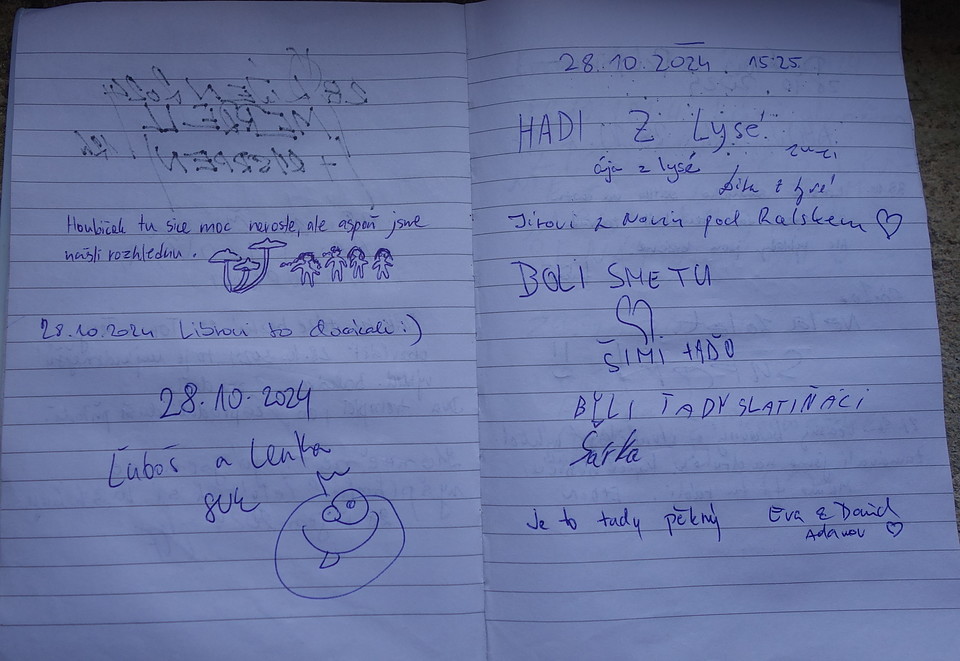 Houbiček tu sice moc neroste, ale aspoň jsme
našli rozhlednu.
28.10.2024 Librovi to docicali :)
28.10.2024
Ľuboš a Lenka
28.10.2024 15:25
HADI Z Lysé
ája z lysé
zuzi
z lysé
Jírovi z Novin pod Ralskem ♡
BOLI SME TU
ŠIMI TAĎO
BYLI TADY SLATIŇÁCI
Šárka
Je to tady pěkný
Eva & David
Adamov ♡